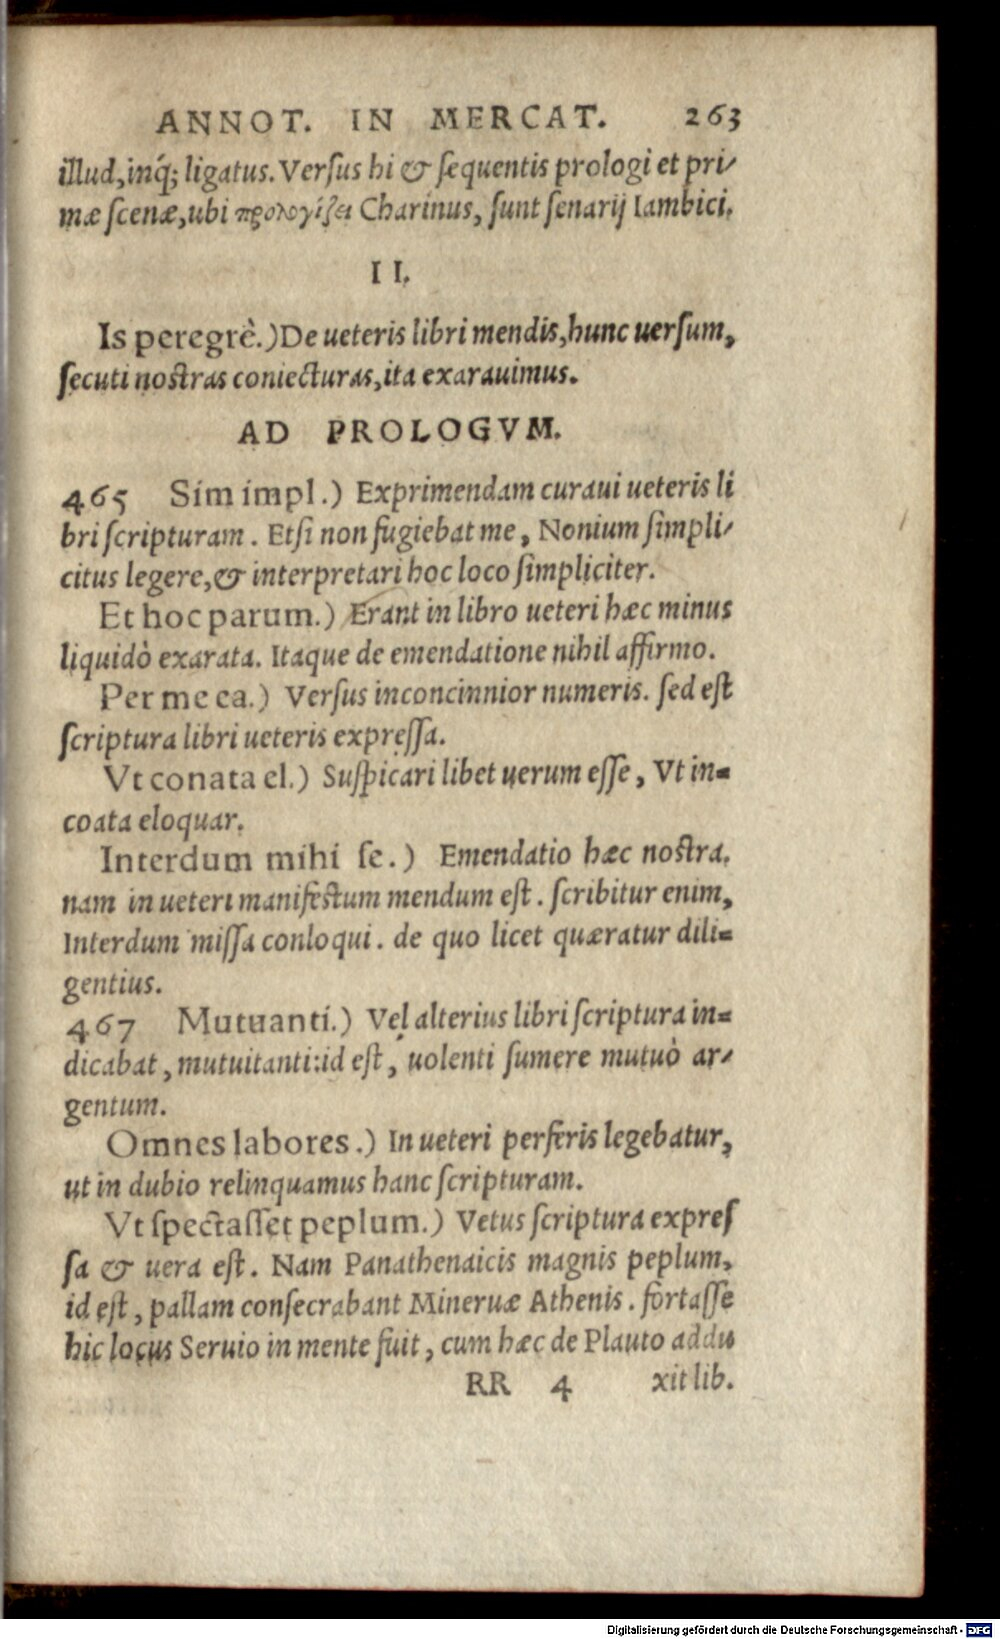 ANNOT. IN MERCAT. 263
illud, inq́; ligatus. Verſus hi & ſequentis prologi et pri⸗
mæ ſcenæ, ubi προλογίζει Charinus, ſunt ſenarij Iambici.
II.
Is peregrè.) De ueteris libri mendis, hunc uerſum,
ſecuti noſtras coniecturas, ita exarauimus.
AD PROLOGVM.
465 Sim impl.) Exprimendam curaui ueteris li
bri ſcripturam. Etſi non fugiebat me, Nonium ſimpli⸗
citus legere, & interpretari hoc loco ſimpliciter.
Et hoc parum.) Erant in libro ueteri hæc minus
liquidò exarata. Itaque de emendatione nihil affirmo.
Per me ea.) Verſus inconcinnior numeris. ſed eſt
ſcriptura libri ueteris expreſſa.
Vt conata el.) Suſpicari libet uerum eſſe, Vt in⸗
coata eloquar.
Interdum mihi ſe.) Emendatio hæc noſtra.
nam in ueteri manifeſtum mendum eſt. ſcribitur enim,
Interdum miſſa conloqui. de quo licet quæratur dili⸗
gentius.
467 Mutuanti.) Vel alterius libri ſcriptura in⸗
dicabat, mutuitanti: id eſt, uolenti ſumere mutuò ar⸗
gentum.
Omnes labores.) In ueteri perferis legebatur,
ut in dubio relinquamus hanc ſcripturam.
Vt ſpectaſſet peplum.) Vetus ſcriptura expreſ
ſa & uera eſt. Nam Panathenaicis magnis peplum,
id eſt, pallam conſecrabant Mineruæ Athenis. fortaſſe
hic locus Seruio in mente fuit, cum hæc de Plauto addu
RR 4 xit lib.
Digitalisierung gefördert durch die Deutsche Forschungsgemeinschaft - DFG